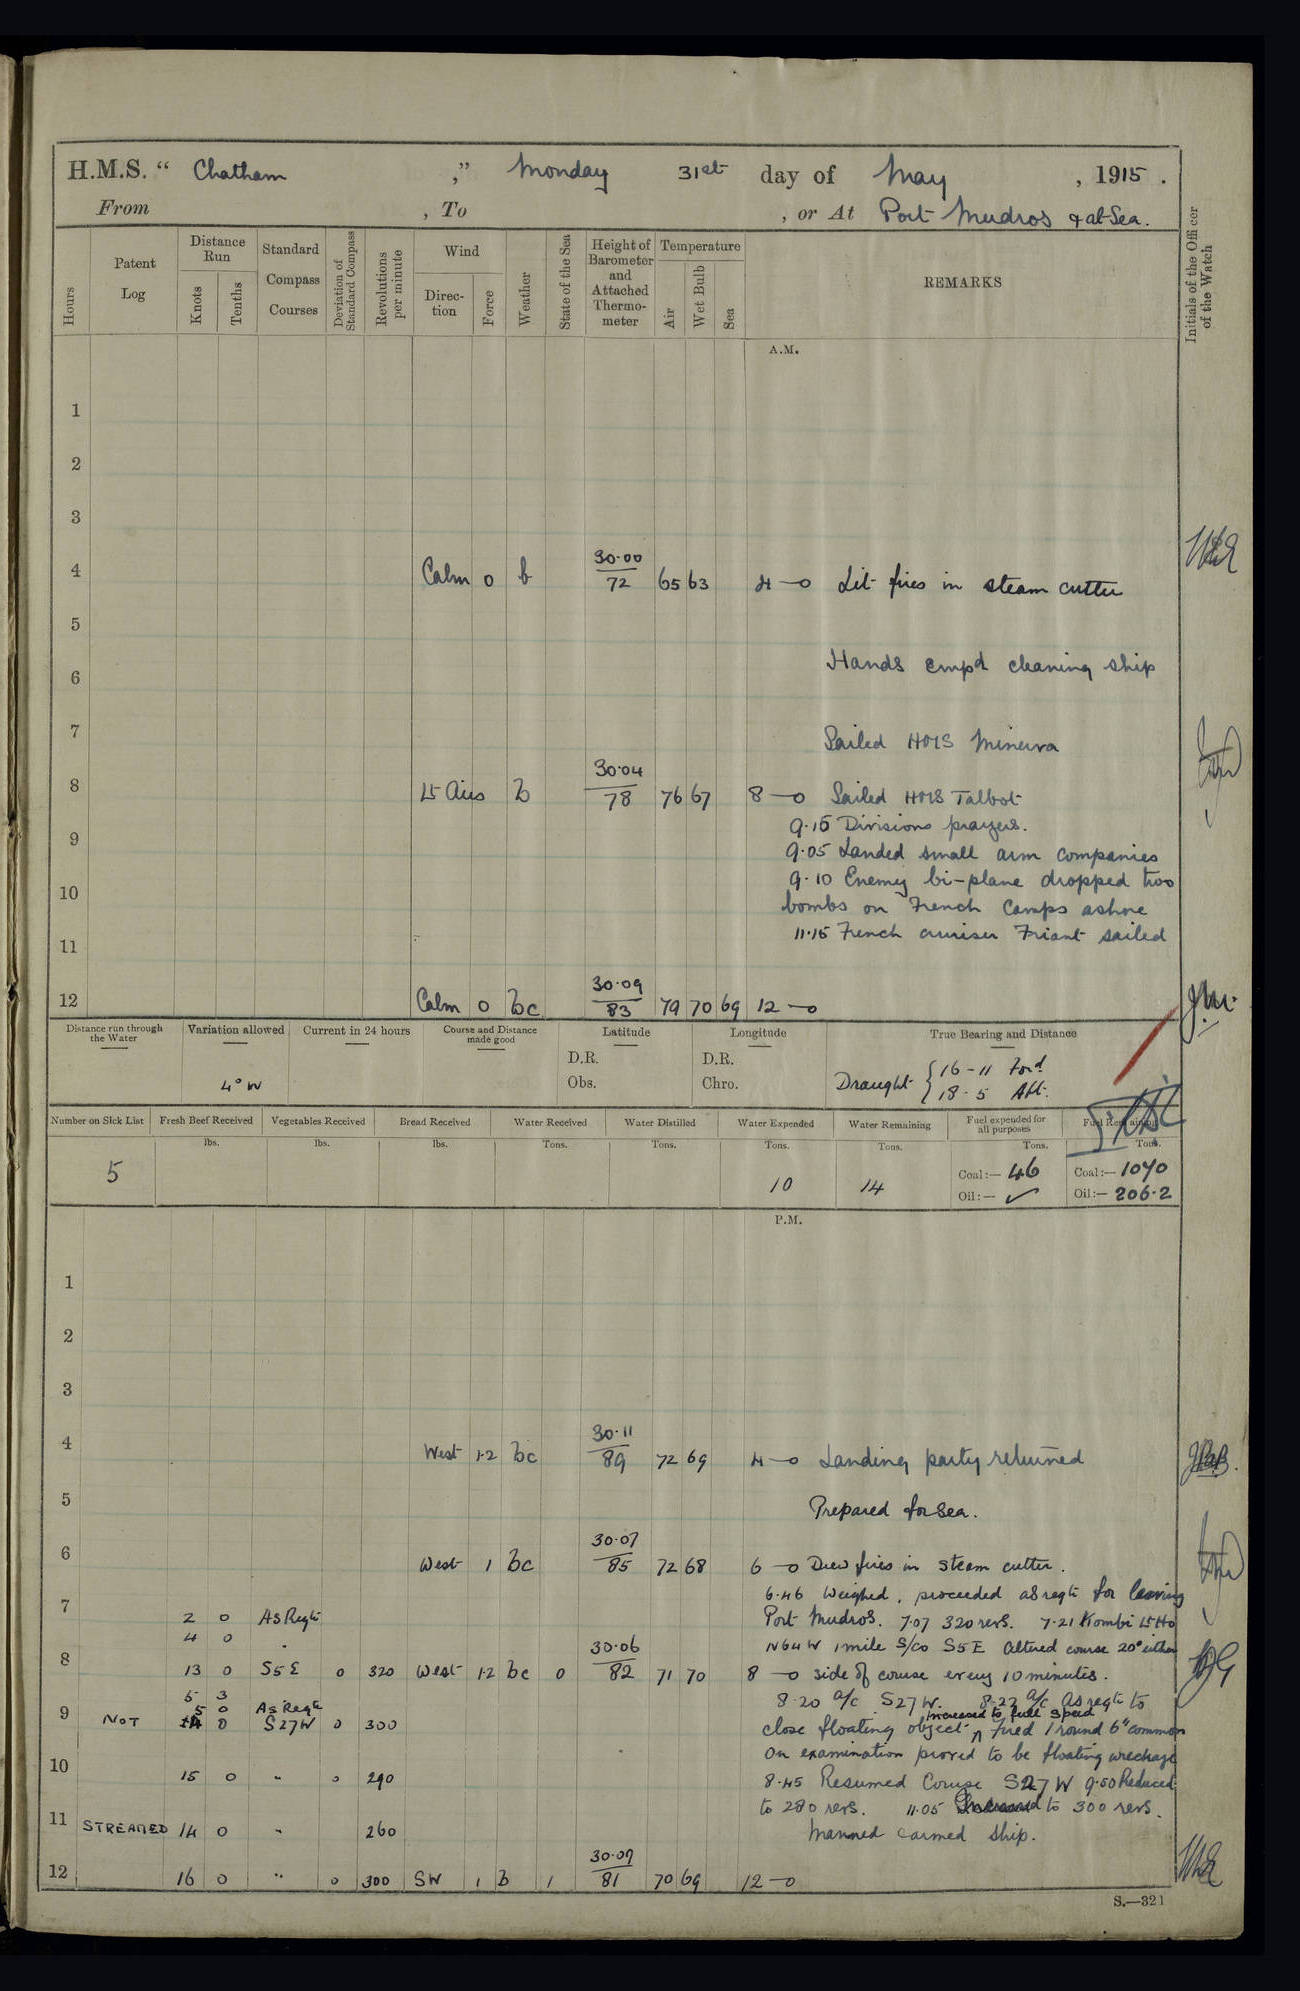 H.M.S. “ Chatham ,” Monday 31st day of May , 1915 .
From , To , or At Port Mudros & at Sea.
Hours
Patent Log
Distance Run
Knots
Tenths
Standard Compass Courses
Deviation of Standard Compass
Revolutions per minute
Wind
Direction
Force
Weather
State of the Sea
Height of Barometer and Attached Thermometer
Temperature
Air
Wet Bulb
Sea
REMARKS
Initials of the Officer of the Watch
A.M.
1
2
3
4 Calm 0 b 30·00 72 65 63 4 — 0 Lit fires in steam cutter
5
Hands empd cleaning ship
6
7 Sailed HMS Minerva
8 Lt Airs b 30·04 78 76 67 8 — 0 Sailed HMS Talbot
9·15 Divisions prayers.
9 9·05 Landed small arm companies
9·10 Enemy bi-plane dropped two
10 bombs on French Camps ashore
11·15 French cruiser Friant sailed
11
12 Calm 0 bc 30·09 83 79 70 69 12 — 0
Distance run through the Water
Variation allowed
Current in 24 hours
Course and Distance made good
Latitude
Longitude
True Bearing and Distance
D.R.
Obs.
D.R.
Chro.
4° W
Draught { 16 - 11 Ford
18 - 5 Aft.
Number on Sick List
Fresh Beef Received
Vegetables Received
Bread Received
Water Received
Water Distilled
Water Expended
Water Remaining
Fuel expended for all purposes
Fuel Remaining
lbs. lbs. lbs. Tons. Tons. Tons. Tons. Tons. Tons.
5 10 14 Coal:— 46 Coal:— 1070
Oil:— ✓ Oil:— 206·2
P.M.
1
2
3
4 West 1·2 bc 30·11 89 72 69 4 — 0 Landing party returned
5 Prepared for sea.
6 West 1 bc 30·07 85 72 68 6 — 0 Drew fires in steam cutter.
6·46 Weighed, proceeded as reqte for leaving
7 2 0 As Reqte Port Mudros. 7·07 320 revs. 7·21 Kombi Lt Ho
4 0 " N64W 1 mile S/Co S5E Altered course 20° either
8 13 0 S5E 0 320 West 1·2 bc 0 30·06 82 71 70 8 — 0 side of course every 10 minutes.
5 3 8·20 a/c S27W. 8·22 a/c As reqte to
5 0 As Reqte increased to full speed
9 NOT 14 0 S27W 0 300 close floating object ^ Fired 1 round 6" common
On examination proved to be floating wreckage
10 15 0 " 0 290 8·45 Resumed Course S27W 9·50 Reduced
to 280 revs. 11·05 Increased to 300 revs.
11 STREAMED 14 0 " 260 Manned armed ship.
12 16 0 " 0 300 SW 1 b 1 30·07 81 70 69 12 — 0
S.—321